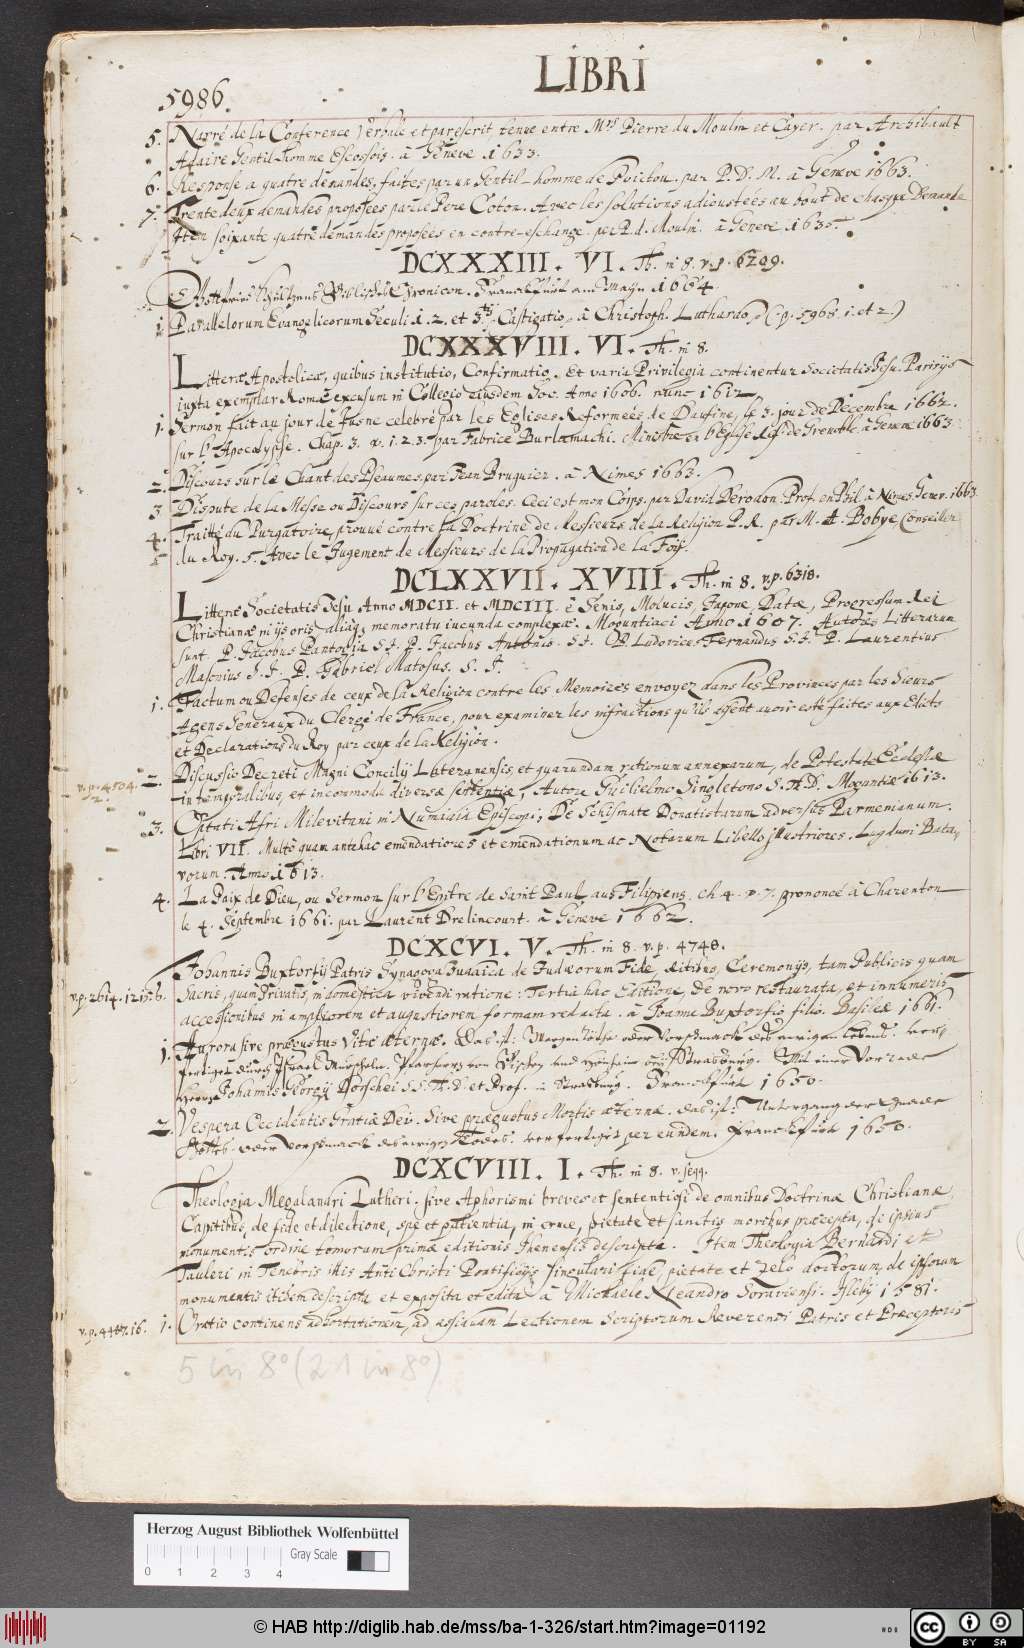 LIBRI
5986.
5. Narré de la Conference Verbale et par escrit tenue entre Mrs Pierre du Moulin et Cayer. par Archibault
Adaire Gentil-homme Escossois. à Geneve 1633.
6. Response a quatre demandes, faites par un Gentil-homme de Poictou. par P. D. M. à Geneve 1663.
7. Trente deux demandes proposées par le Pere Coton. Avec les solutions adioustées au bout de chasque Demande
Item soixante quatre demandes proposées en contre-eschange. par P. d. Moulin. à Geneve 1635.
DCXXXIII. VI. Th. in 8. v. p. 6299.
Gottfried Biblisches Chronicon. Franckfurt am Mayn 1664.
1. Parallelorum Evangelicorum Seculi 1. 2. et 3tij Castigatio, à Christoph. Luthardo, (p. 5968. 1. et 2.)
DCXXXVIII. VI. Th. in 8.
Litteræ Apostolicæ, quibus institutio, Confirmatio, Et varia Privilegia continentur Societatis Jesu. Parisijs
iuxta exemplar Romæ excusum in Collegio eiusdem Soc. Anno 1606. nunc 1612.
1. Sermon fait au jour de Jusne celebré par les Eglises Reformées de Daufiné, le 3. jour de Decembre 1662.
sur l'Apocalypse. Chap. 3. v. 1. 2. 3. par Fabrice Burlamachi. Ministre en l'Eglise Ref. de Grenoble. à Geneve 1663.
2. Discours sur le Chant des Pseaumes, par Jean Bruguier. à Nimes 1663.
3. Dispute de la Messe ou Discours sur ces paroles. Ceci est mon Corps. par David Derodon. Prof. en Phil. à Nimes, Genev. 1663.
4. Traitté du Purgatoire, prouué contre la Doctrine de Messieurs de la Religion P. R. par M. A. Bobye Conseiller
du Roy. 5. Avec le Jugement de Messieurs de la Propagation de la Foy.
DCLXXVII. XVIII. Th. in 8. v. p. 6318.
Litteræ Societatis Jesu Anno MDCII. et MDCIII. è Sinis, Molucis, Japone Datæ, Progressum Rei
Christianæ in ijs oris, aliaq; memoratu iucunda complexæ. Moguntiaci Anno 1607. Autores Litterarum
sunt P. Jacobus Pantogia S. J. P. Jacobus Antonio. S. J. P. Ludovicus Fernandus S. J. P. Laurentius
Masonius S. J. P. Gabriel Matosus. S. J.
1. Factum ou Defenses de ceux de la Religion contre les Memoires envoyez dans les Provinces par les Sieurs
Agens Generaux du Clergé de France, pour examiner les infractions qu'ils disent avoir esté faites aux Edicts
et Declarations du Roy par ceux de la Religion.
v. p. 4504. 2.
2. Discussio Decreti Magni Concilij Lateranensis, et quarundam rationum annexarum, de Potestate Ecclesiæ
in temporalibus, et incommoda diversæ sententiæ, Autore Guilielmo Singletono S. Th. D. Moguntiæ 1613.
3. Optati Afri Milevitani in Numidia Episcopi, De Schismate Donatistarum adversus Parmenianum.
Libri VII. Multò quam antehac emendatiores et emendationum ac Notarum Libello illustriores. Lugduni Bata-
vorum. Anno 1613.
4. La Paix de Dieu, ou Sermon sur l'Epitre de Saint Paul aus Filipiens. ch. 4. v. 7. prononcé à Charenton
le 4. Septembre 1661. par Laurent Drelincourt. à Geneve 1662.
DCXCVI. V. Th. in 8. v. p. 4748.
Johannis Buxtorfij Patris Synagoga Judaica de Judæorum Fide, Ritibus, Ceremonijs, tam Publicis quam
v. p. 2614. 1215. 6.
Sacris, quam Privatis, in domestica vivendi ratione: Tertia hac Editione, de novo restaurata, et innumeris
accessionibus in ampliorem et augustiorem formam redacta. à Joanne Buxtorfio filio. Basileæ 1661.
1. Aurora sive prægustus Vitæ æternæ. Das ist: Morgenröthe oder Vorschmack des ewigen Lebens. ver-
fertiget durch Israel Murscheln. Pfarherrn von Straßburg. Mit einer Vorrede
Herrn Johannis Georgij Dorschei S. S. Th. D. et Prof. in Strasburg. Franckfurt 1650.
2. Vespera Occidentis Gratiæ Dei. Sive prægustus Mortis æternæ. das ist: Untergang der Gnade
Gottes. oder Vorschmack des ewigen Todes. verfertigt per eundem. Franckfurt 1650.
DCXCVIII. I. Th. in 8. v. 5699.
Theologia Megalandri Lutheri. sive Aphorismi breves et sententiosi de omnibus Doctrinæ Christianæ
Capitibus, de fide et dilectione, spe et patientia, in cruce, pietate et sanctis moribus præcepta, de ipsius
monumentis ordine tomorum primæ editionis Jhenensis descripta. Item Theologia Bernardi et
Tauleri in Tenebris illis Anti Christi Pontificijs singulari fide, pietate et zelo doctorum, de ipsorum
monumentis itidem descripta et exposita et edita à Michaele Neandro Soraviensi. Islebij 1581.
v. p. 4487. 16.
1. Oratio continens adhortationem, ad assiduam Lectionem Scriptorum Reverendi Patris et Præceptoris
5 in 8° (21 in 8°)
Herzog August Bibliothek Wolfenbüttel
Gray Scale
0 1 2 3 4
© HAB http://diglib.hab.de/mss/ba-1-326/start.htm?image=01192
cc BY SA